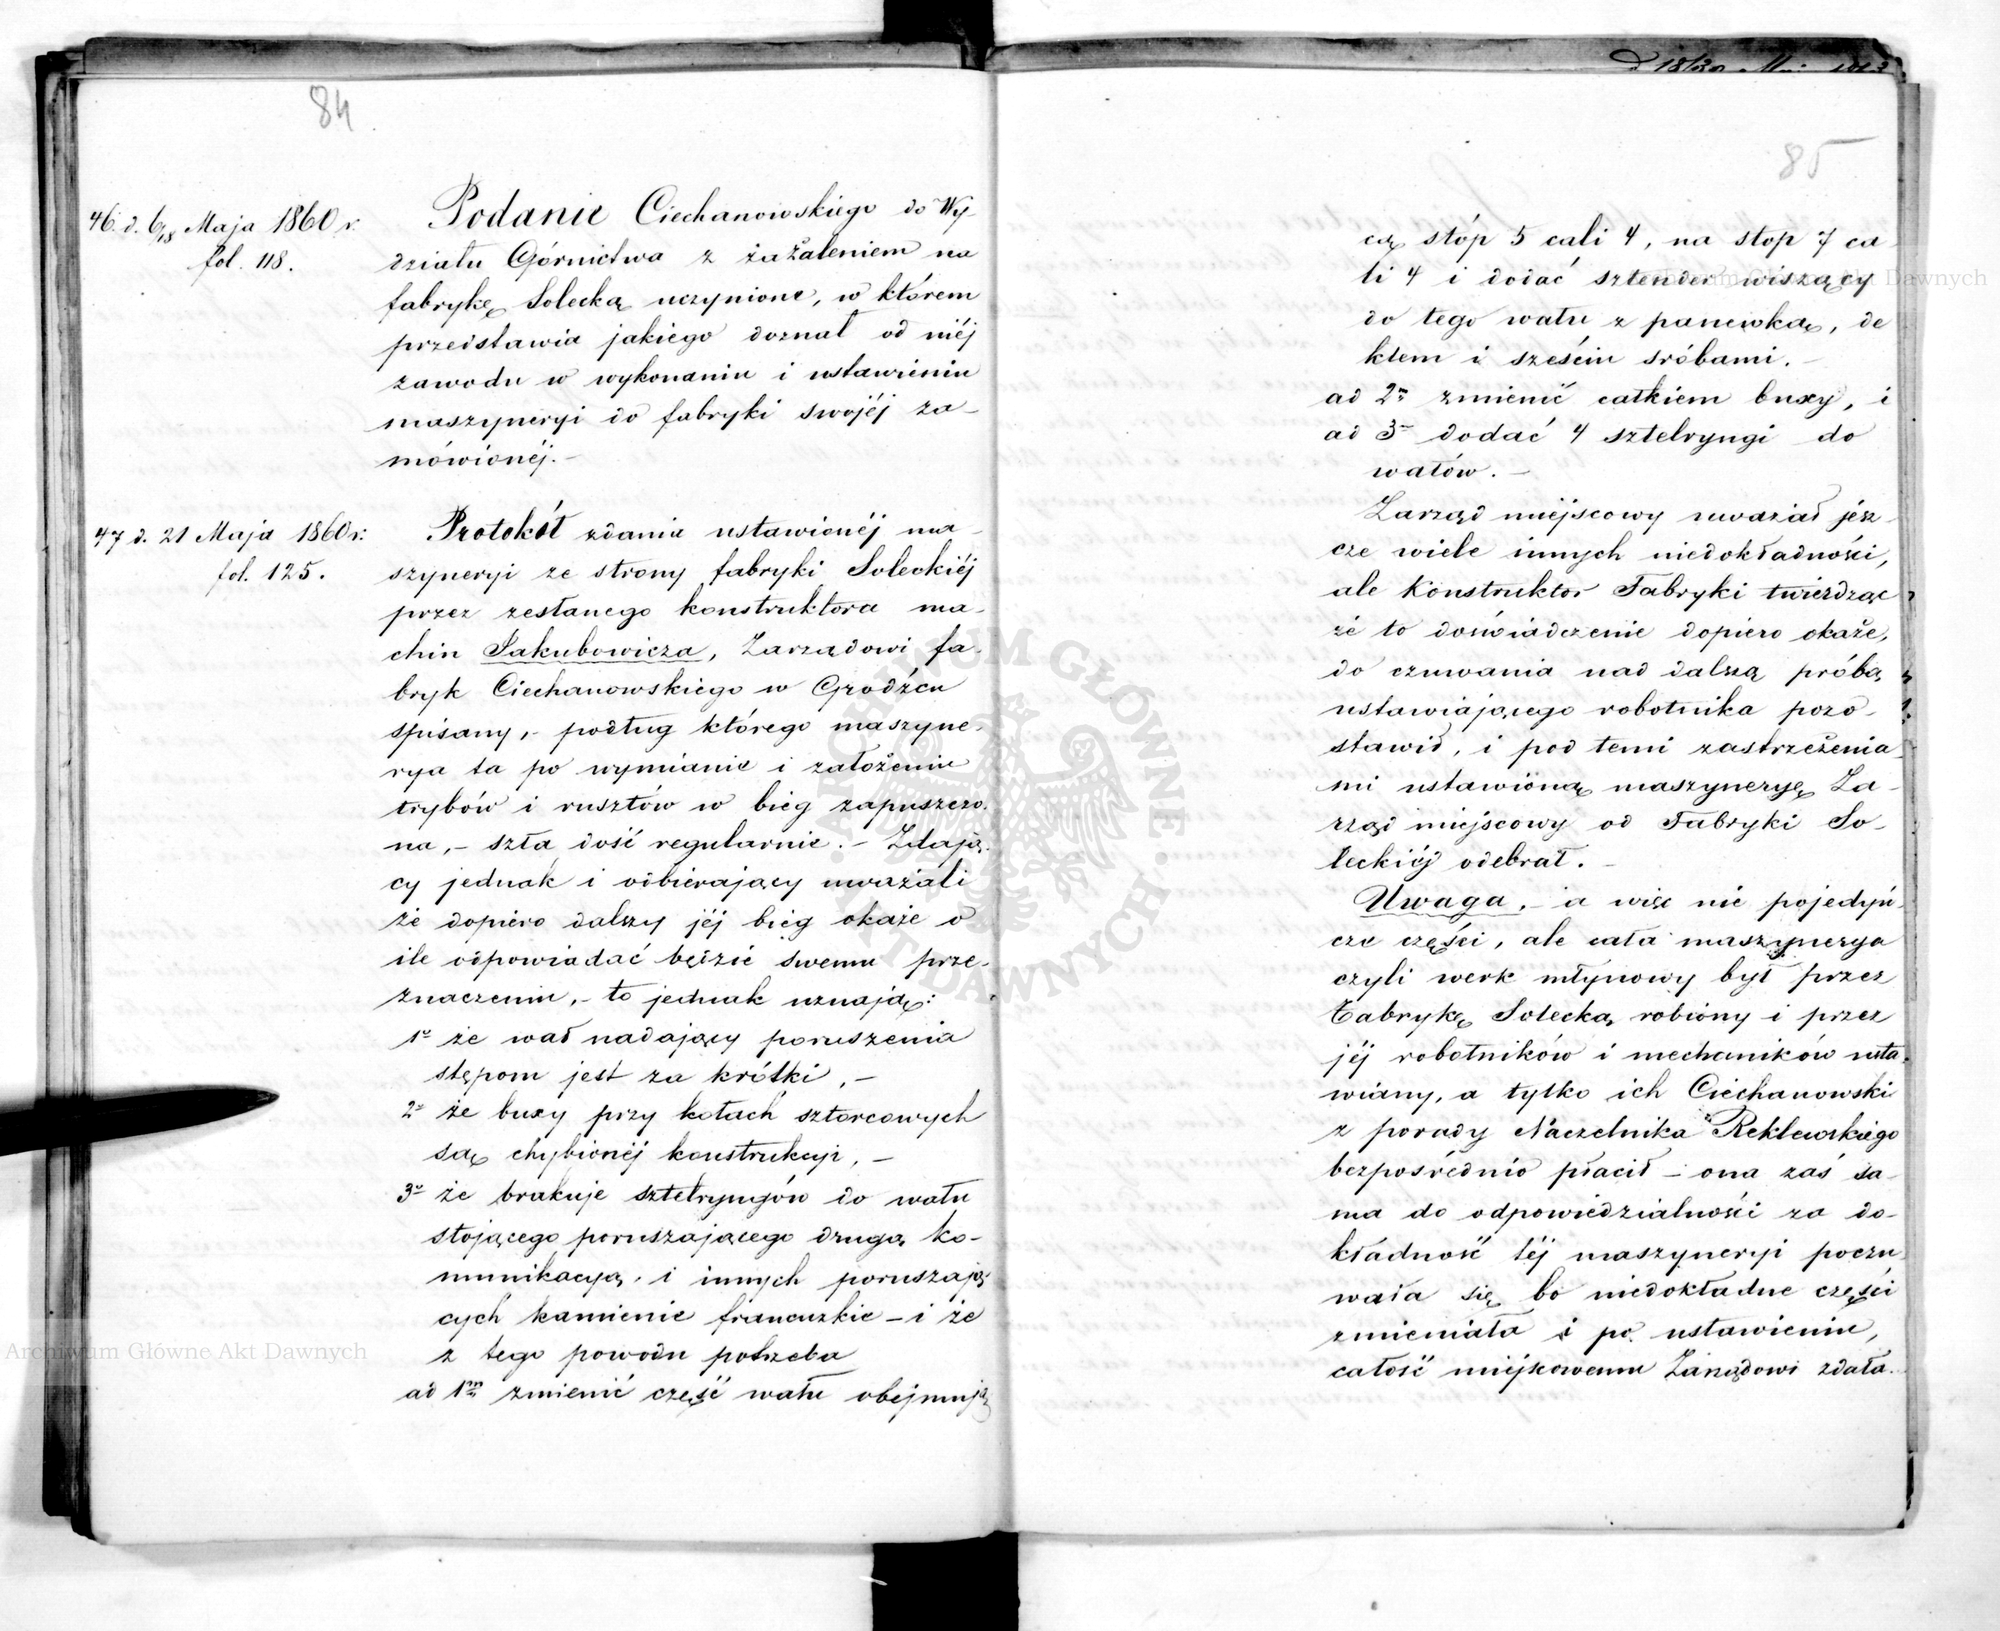 84
46. d. 6/18 Maja 1860 r.
fol. 118.
Podanie Ciechanowskiego do Wy-
działu Górnictwa z zażaleniem na
fabrykę Solecką uczynione, w którem
przedstawia jakiego doznał od niéj
zawodu w wykonaniu i ustawieniu
maszyneryi do fabryki swojéj za-
mówionéj.-
47 d. 21 Maja 1860 r.
fol. 125.
Protokół zdania ustawionéj ma-
szyneryi ze strony fabryki Soleckiéj
przez zesłanego konstruktora ma-
chin Jakubowicza, Zarządowi fa-
bryk Ciechanowskiego w Grodźcu
spisany,- podług którego maszyne-
rya ta po wymianie i założeniu
trybów i rusztów w bieg zapuszczo-
na,- szła dość regularnie.- Zdają-
cy jednak i odbierający uważali
że dopiero dalszy jéj bieg okaże o
ile odpowiadać będzie swemu prze-
znaczeniu,- to jednak uznają:
1o że wał nadający poruszenia
stępom jest za krótki,-
2o że buxy przy kołach sztorcowych
są chybionéj konstrukcyi,-
3o że brakuje sztelryngów do wału
stojącego poruszającego drugą ko-
munikacyą, i innych poruszają-
cych kamienie francuzkie - i że
z tego powodu potrzeba
ad 1m zmienić część wału obejmują-
85
cą stóp 5 cali 4, na stop 7 ca-
li 4 i dodać sztender wiszący
do tego wału z panewką, de
klem i sześciu śróbami.-
ad 2m zmienić całkiem buxy, i
ad 3m dodać 4 sztelryngi do
wałów.-
Zarząd miejscowy uważał jesz-
cze wiele innych niedokładności,
ale Konstruktor Fabryki twierdząc
że to doświadczenie dopiero okaże,
do czuwania nad dalszą próbą
ustawiającego robotnika pozo-
stawił, i pod temi zastrzeżenia-
mi ustawioną maszyneryę Za-
rząd miejscowy od Fabryki So-
leckiéj odebrał.-
Uwaga,- a więc nie pojedyń-
cze części, ale cała maszynerya
czyli werk młynowy był przez
Fabrykę Solecką robiony i przez
jéj robotników i mechaników usta-
wiany, a tylko ich Ciechanowski
z porady Naczelnika Reklewskiego
bezpośrednio płacił - ona zaś sa-
ma do odpowiedzialności za do-
kładność téj maszyneryi poczu
wała się bo niedokładne części
zmieniała i po ustawieniu,
całość miejscowemu Zarządowi zdała.
Archiwum Główne Akt Dawnych
Archiwum Główne Akt Dawnych
ARCHIWUM GŁÓWNE AKT DAWNYCH